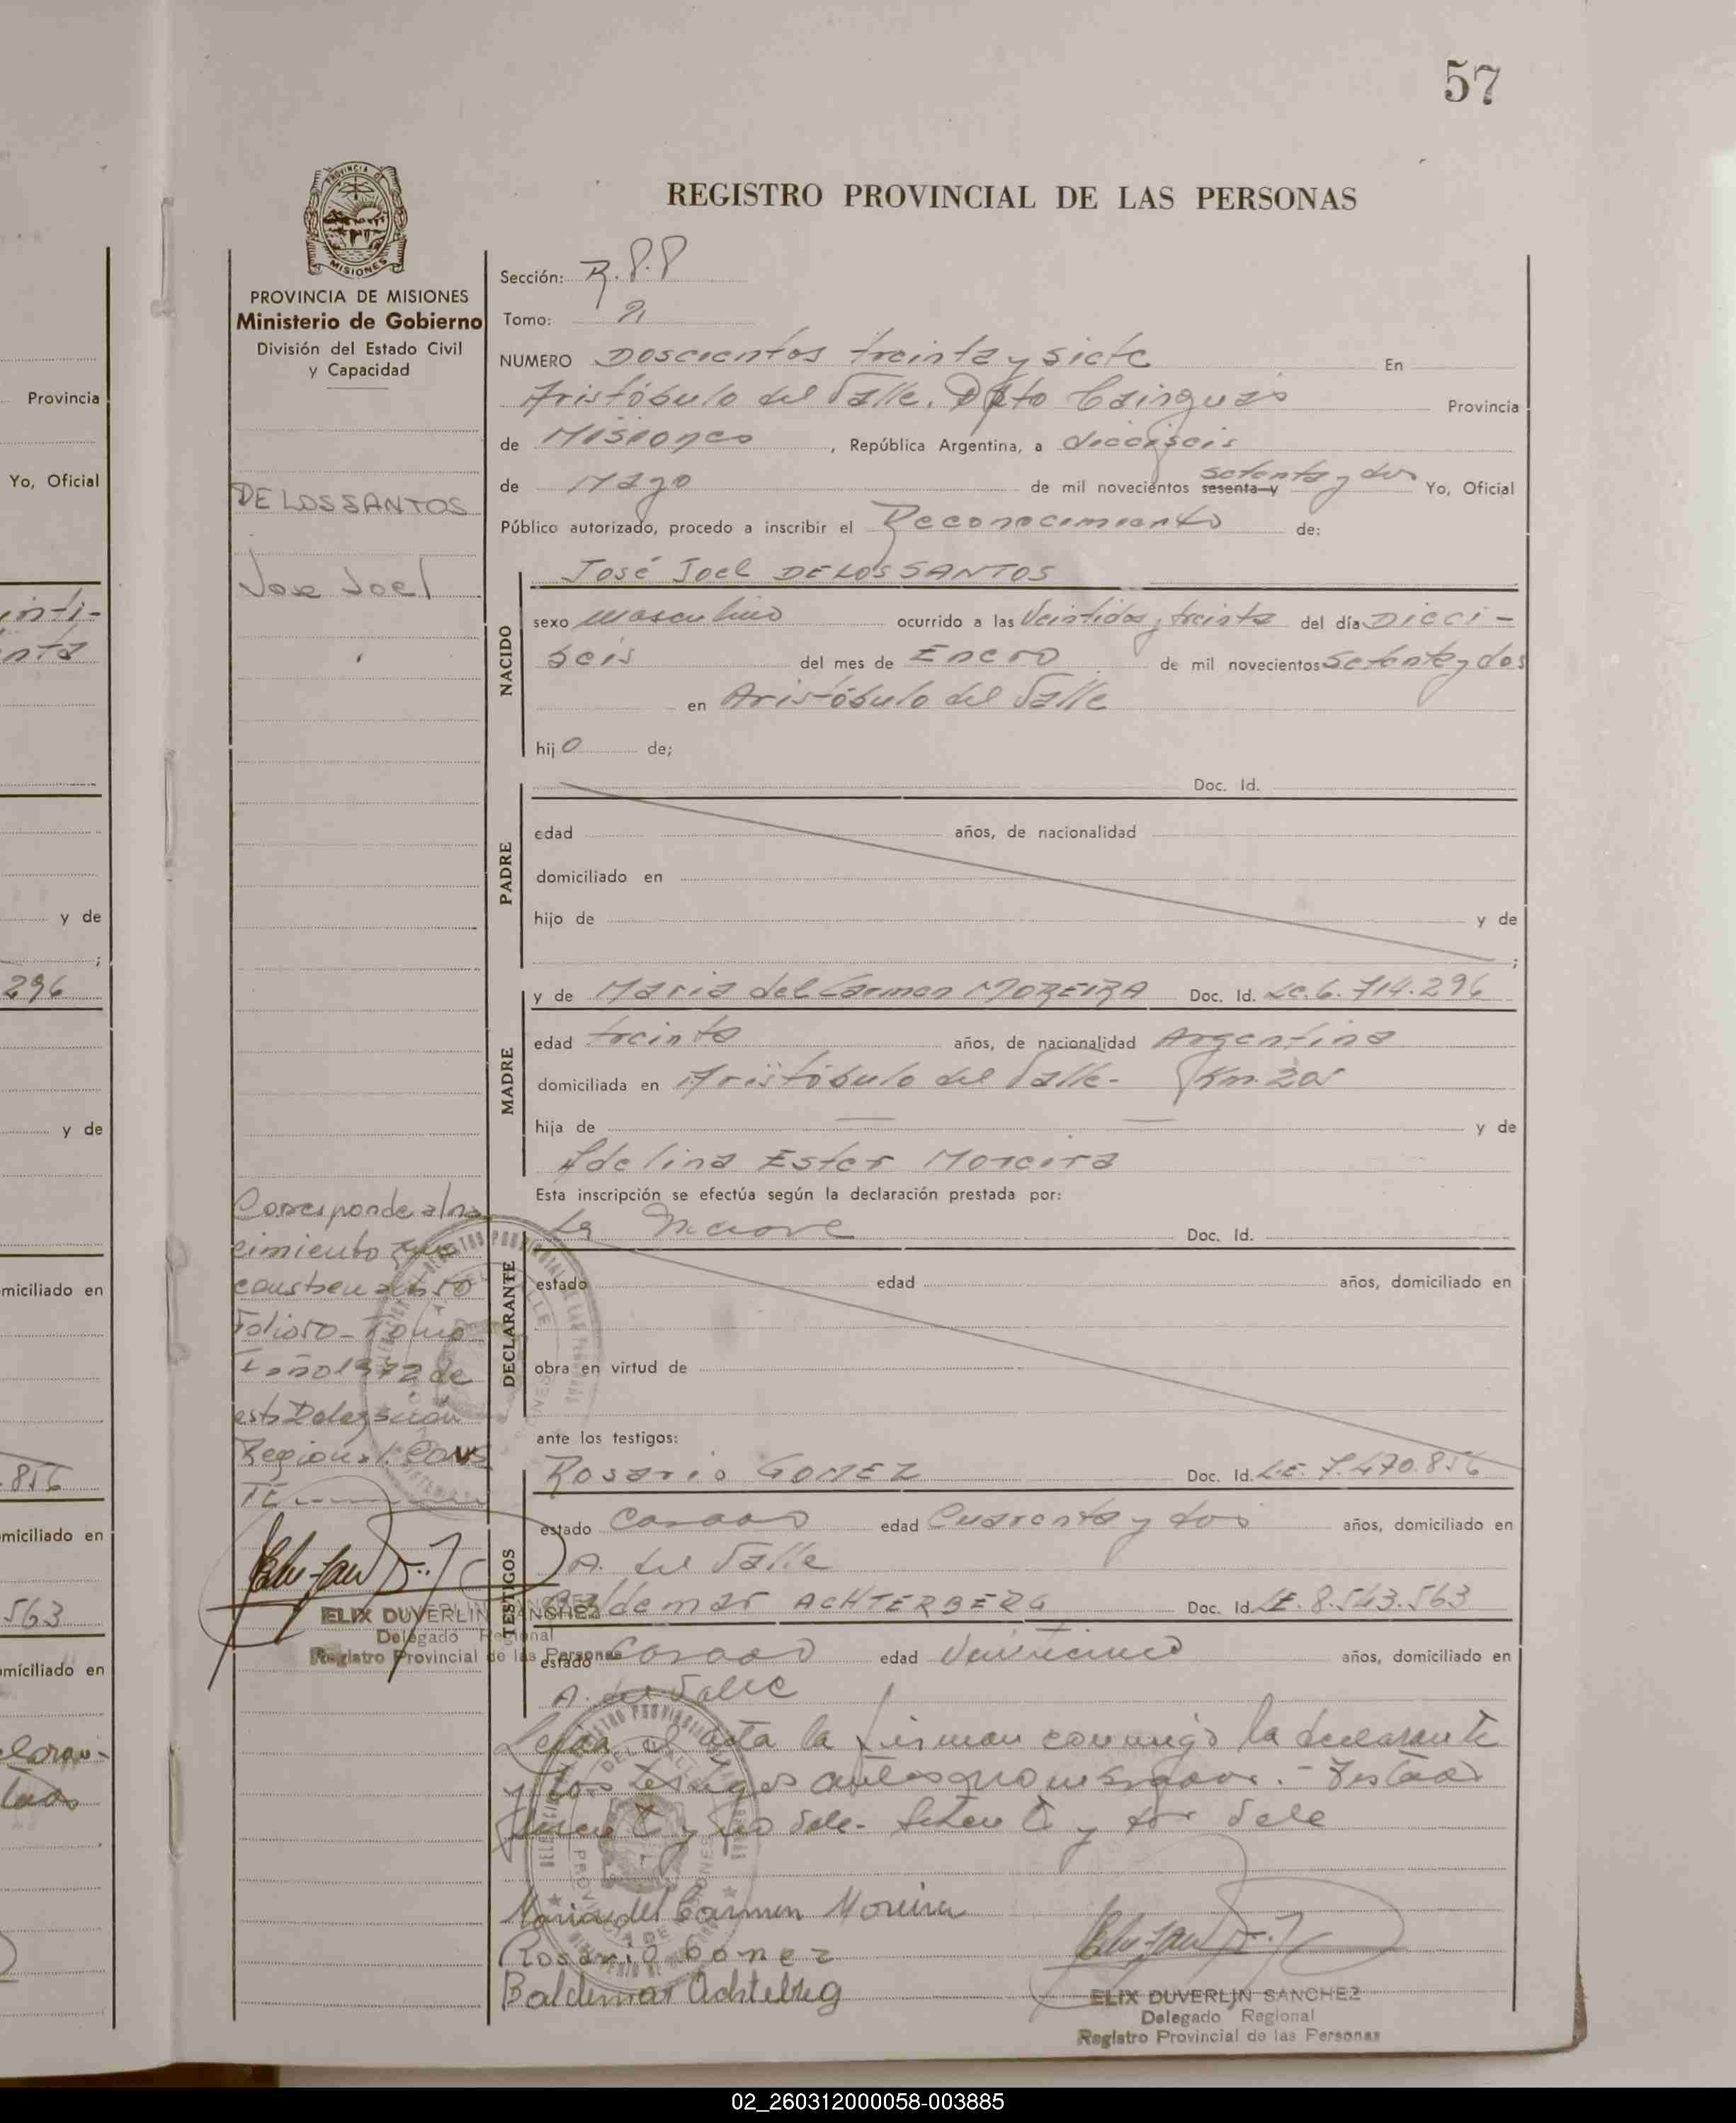 57
REGISTRO PROVINCIAL DE LAS PERSONAS
PROVINCIA DE MISIONES
PROVINCIA DE MISIONES
Ministerio de Gobierno
División del Estado Civil
y Capacidad
DE LOS SANTOS
Jose Joel
Corresponde al na
cimiento que
consta en acta 50
Folio 50 - Tomo
I año 1972 de
esta Delegación
Regional. CONS
TE
ELIX DUVERLIN SANCHEZ
Delegado Regional
Registro Provincial de las Personas
Sección: R.P.P
Tomo: 2
NUMERO Doscientos treinta y siete En
Aristóbulo del Valle. Dpto Cainguas Provincia
de Misiones, República Argentina, a dieciseis
de Mayo de mil novecientos sesenta y setenta y dos Yo, Oficial
Público autorizado, procedo a inscribir el Reconocimiento de:
NACIDO
José Joel DE LOS SANTOS
sexo masculino ocurrido a las Veintidos y treinta del día Dieci-
seis del mes de Enero de mil novecientos setenta y dos
en Aristóbulo del Valle
hijo de;
PADRE
Doc. Id.
edad años, de nacionalidad
domiciliado en
hijo de y de
;
MADRE
y de Maria del Carmen MOREIRA Doc. Id. LC. 6.714.296
edad treinta años, de nacionalidad Argentina
domiciliada en Aristóbulo del Valle- Km. 205
hija de — — y de
Adelina Ester Moreira
Esta inscripción se efectúa según la declaración prestada por:
DECLARANTE
La madre Doc. Id.
estado edad años, domiciliado en
obra en virtud de
ante los testigos:
TESTIGOS
Rosario GOMEZ Doc. Id. L.E. 7.470.856
estado Casado edad Cuarenta y dos años, domiciliado en
A. del Valle
Baldemar ACHTERBERG Doc. Id. LE. 8.543.563
estado Casado edad Veinticinco años, domiciliado en
A. del Valle
Leida el acta la firman conmigo la declarante
y los testigos antes nombrados. - Testado
sesenta y no vale. Setenta y dos vale
Maria del Carmen Moreira
Rosario Gomez
Baldemar Achtelbreg
ELIX DUVERLIN SANCHEZ
Delegado Regional
Registro Provincial de las Personas
Provincia
Yo, Oficial
y de
296
y de
miciliado en
.856
miciliado en
563
miciliado en
02_260312000058-003885